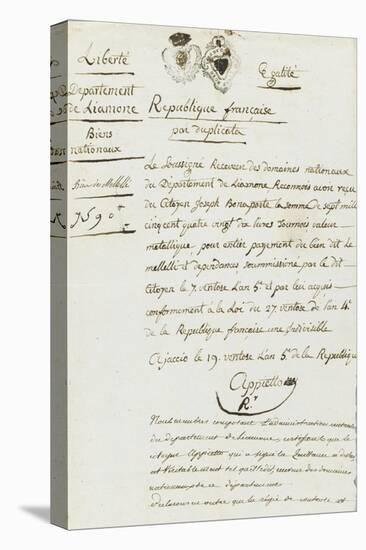 Liberté
Egalité
Département
de Liamone
Biens
nationaux
Bien de Mellelli
7590
République française
par duplicata
Le Soussigné Receveur des domaines nationaux
du Département de Liamone Reconnois avoir reçu
du Citoyen Joseph Bonaparte la somme de sept mille
cinq cent quatre vingt dix livres tournois valeur
metallique, pour entier payement du bien dit Le
mellelli et dependances soummissiné par le dit
Citoyen le 7. ventose L'an 5e. et par lui acquis
conformement a la Loi du 27. ventose de l'an 4e.
de la Republique françoise une Indivisible
Ajaccio le 19. ventose L'an 5e. de la Republique
Appietto
Rr
Nous membres composant L'administration centrale
du departement de Liamone, certifions que le
citoyen Appietto qui a signé la Quittance
est veritablement tel des domaines
nationaux de ce département
Declarons en outre que la régie de